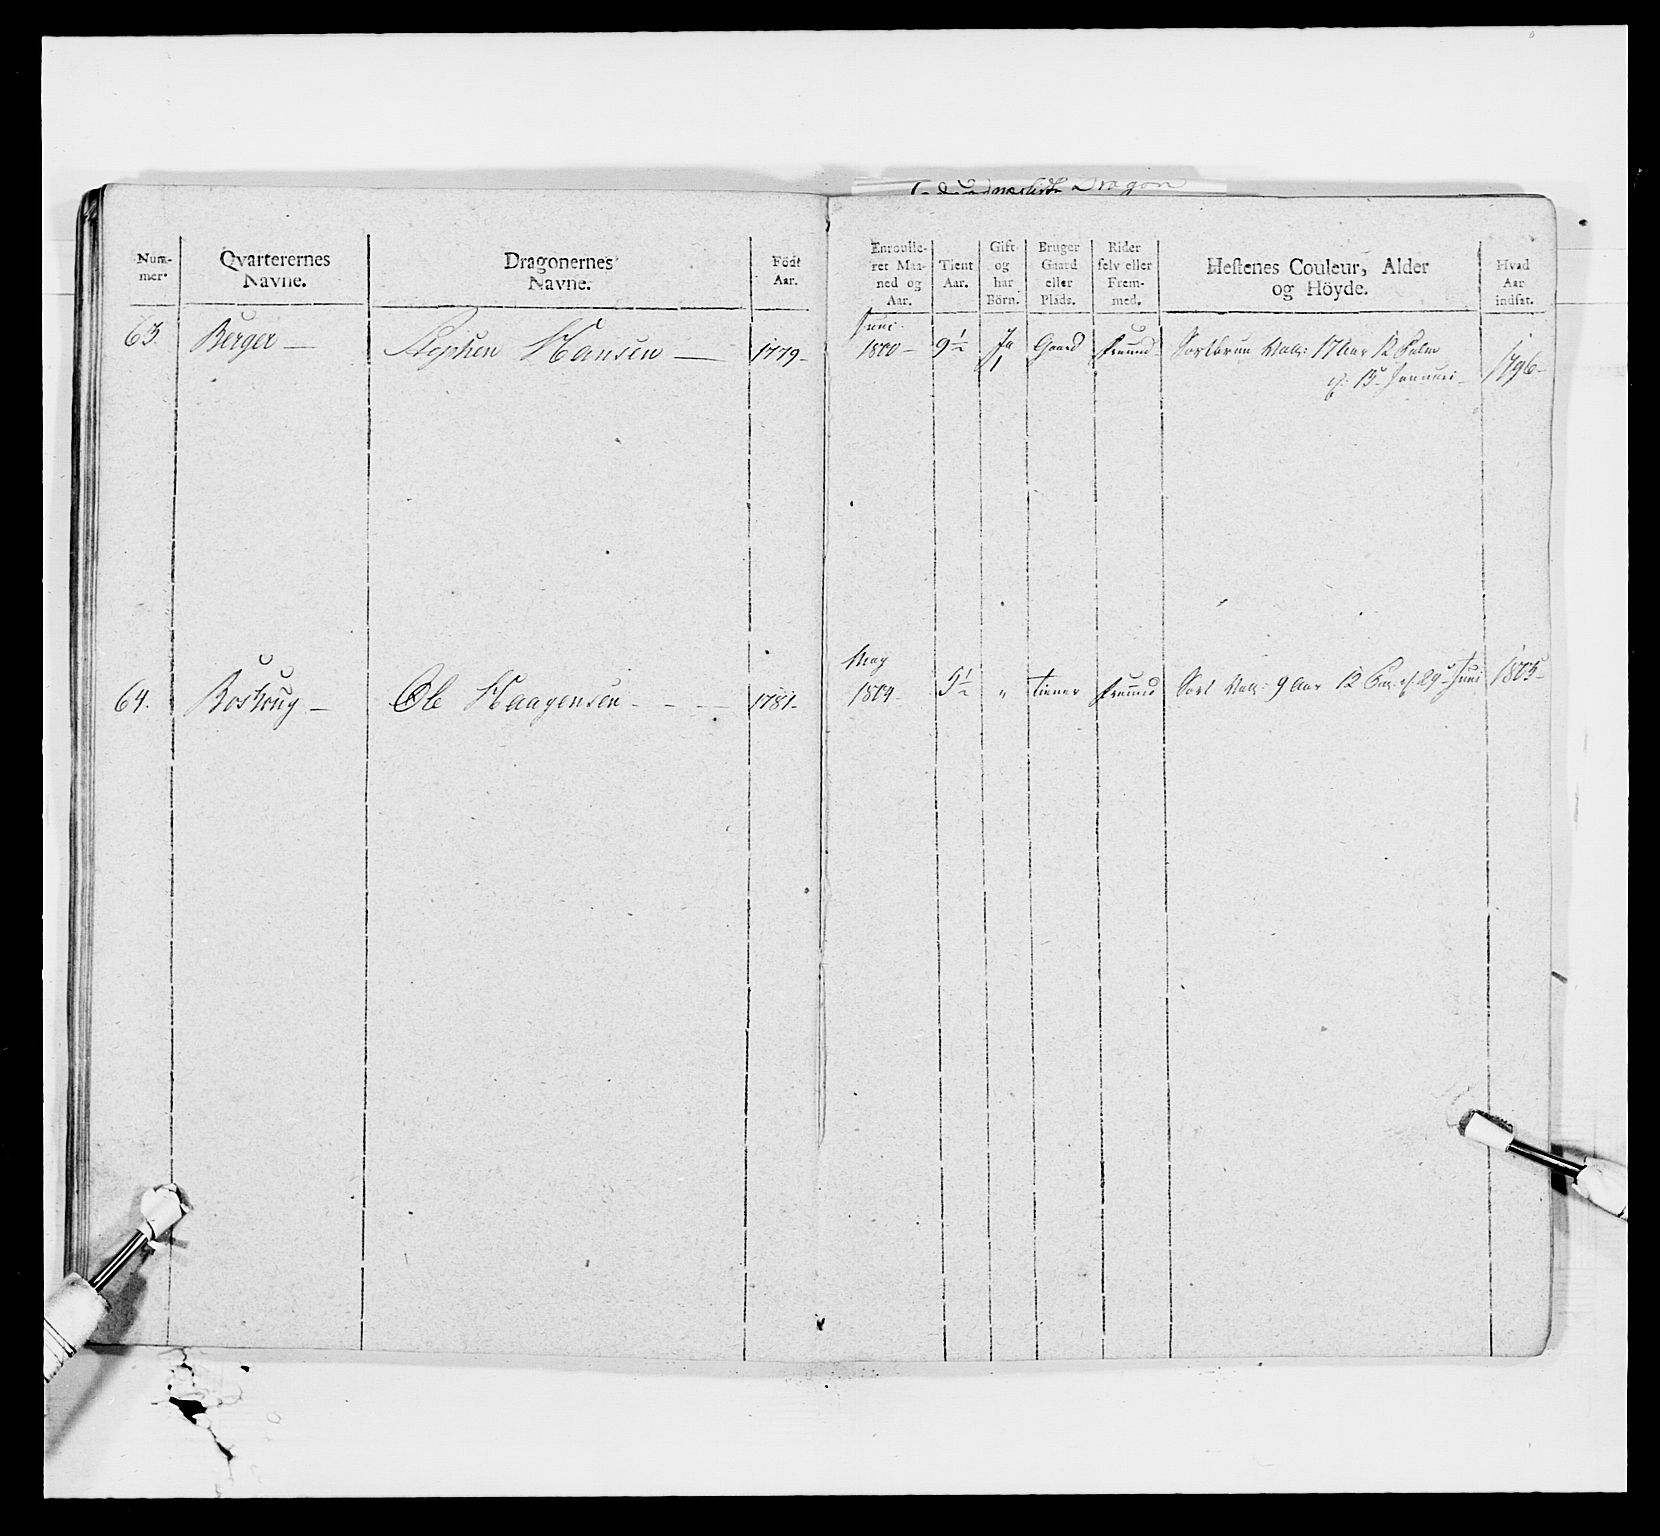 Dragon
Num-
mer.
Qvarterernes
Navne.
Dragonernes
Navne.
Född
Aar.
Enroulle-
ret Maa-
ned og
Aar.
Tient
Aar.
Gift
og
har
Börn.
Bruger
Gaard
eller
Plads.
Rider
selv eller
Frem-
med.
Hestenes Couleur, Alder
og Höyde.
Hvad
Aar
indsat.
63. Berger — Stephen Hansen — 1779-
Juni
1800- 9½ Ja 1 Gaard fremmed Sortbrun Val: 17 Aar 12
1796-
64. Bostrug — Ole Haagensen - - - 1781-
May
1804- 5½ " tiener fremmed Sort Val: 9 Aar 12 Juni 1805-